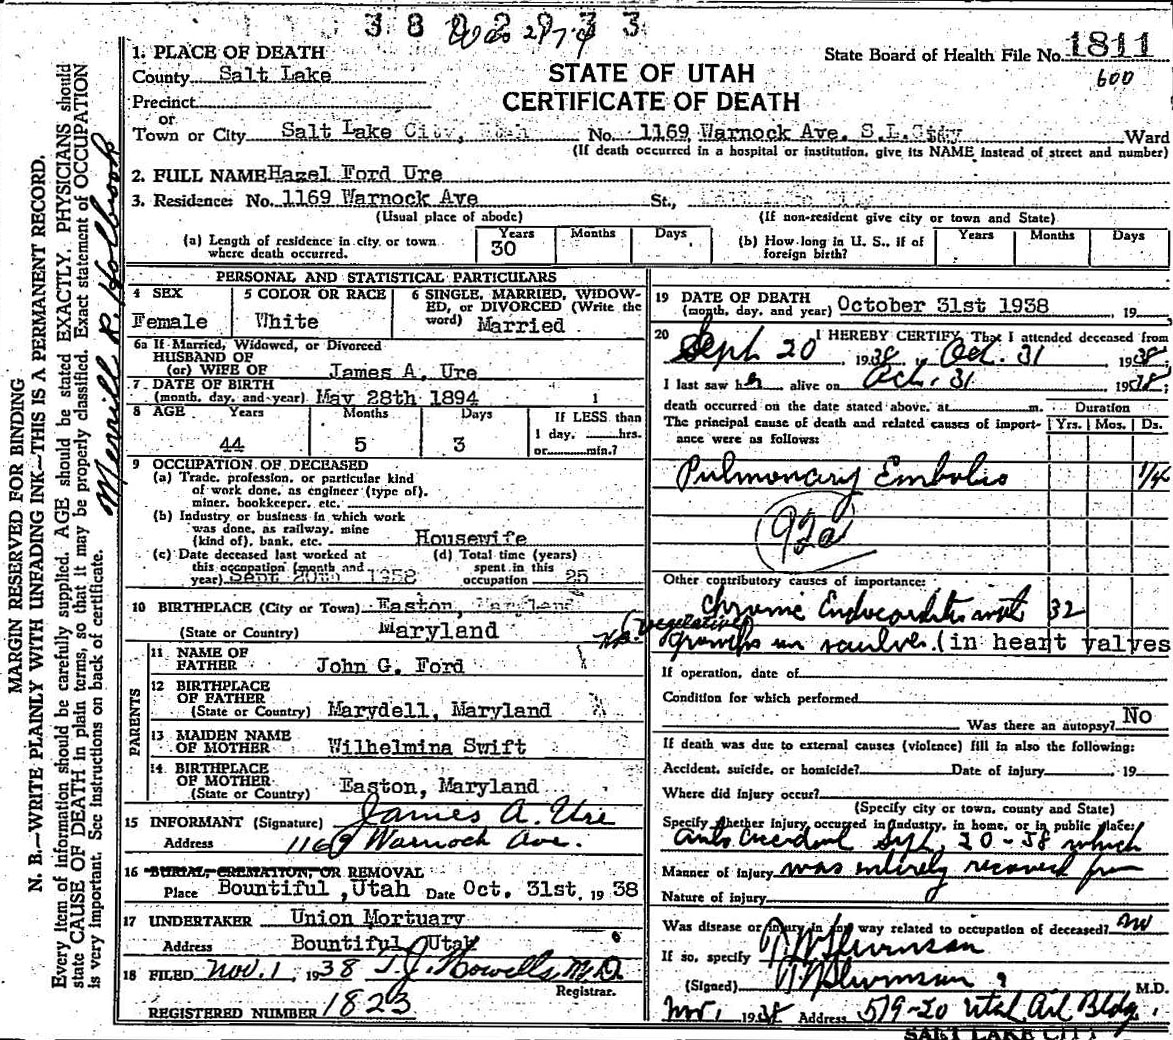 3 8 0 2 9 3 3
State Board of Health File No. 1811
600
1. PLACE OF DEATH
County Salt Lake
STATE OF UTAH
CERTIFICATE OF DEATH
Precinct
or
Town or City Salt Lake City, Utah No. 1169 Warnock Ave. S.L.City Ward
(If death occurred in a hospital or institution, give its NAME instead of street and number)
2. FULL NAME Hazel Ford Ure
3. Residence: No. 1169 Warnock Ave St.,
(Usual place of abode) (If non-resident give city or town and State)
(a) Length of residence in city or town where death occurred. Years 30 Months Days
(b) How long in U. S., if of foreign birth? Years Months Days
PERSONAL AND STATISTICAL PARTICULARS
4 SEX Female
5 COLOR OR RACE White
6 SINGLE, MARRIED, WIDOWED, OR DIVORCED (Write the word) Married
6a If Married, Widowed, or Divorced
HUSBAND OF
(or) WIFE OF James A. Ure
7 DATE OF BIRTH
(month, day, and year) May 28th 1894 1
8 AGE Years 44 Months 5 Days 3
If LESS than
1 day, hrs.
or min.?
9 OCCUPATION OF DECEASED
(a) Trade, profession, or particular kind
of work done, as engineer (type of),
miner, bookkeeper, etc.
(b) Industry or business in which work
was done, as railway, mine
(kind of), bank, etc. Housewife
(c) Date deceased last worked at
this occupation (month and
year) Sept 20th 1938
(d) Total time (years)
spent in this
occupation 25
10 BIRTHPLACE (City or Town) Easton, Maryland
(State or Country) Maryland
PARENTS
11 NAME OF
FATHER John G. Ford
12 BIRTHPLACE
OF FATHER
(State or Country) Marydell, Maryland
13 MAIDEN NAME
OF MOTHER Wilhelmina Swift
14 BIRTHPLACE
OF MOTHER
(State or Country) Easton, Maryland
15 INFORMANT (Signature) James A. Ure
Address 1169 Warnock Ave.
16 BURIAL, CREMATION, OR REMOVAL
Place Bountiful, Utah Date Oct. 31st, 1938
17 UNDERTAKER Union Mortuary
Address Bountiful, Utah
18 FILED Nov. 1, 1938 T.J. Howells M.D.
Registrar.
REGISTERED NUMBER 1823
19 DATE OF DEATH
(month, day, and year) October 31st 1938 , 19
20 I HEREBY CERTIFY, That I attended deceased from
Sept 20 1938, Oct. 31 1938,
I last saw her alive on Oct. 31 1938,
death occurred on the date stated above, at m.
The principal cause of death and related causes of importance were as follows:
Duration
Yrs. Mos. Ds.
Pulmonary Embolis 1/4
92a
Other contributory causes of importance:
Chronic Endocarditis with 32
vegetative
growths on valves. (in heart valves
If operation, date of
Condition for which performed
Was there an autopsy? No
If death was due to external causes (violence) fill in also the following:
Accident, suicide, or homicide? Date of injury , 19
Where did injury occur?
(Specify city or town, county and State)
Specify whether injury occurred in industry, in home, or in public place:
Auto Accident Sept. 20-38 which
Manner of injury was entirely recoverd from
Nature of injury
Was disease or injury in any way related to occupation of deceased? no
If so, specify
(Signed) M.D.
Nov 1 1938 Address 519-20 Utah Oil Bldg.
SALT LAKE CITY
MARGIN RESERVED FOR BINDING
N. B.—WRITE PLAINLY WITH UNFADING INK—THIS IS A PERMANENT RECORD.
Every item of information should be carefully supplied. AGE should be stated EXACTLY. PHYSICIANS should
state CAUSE OF DEATH in plain terms, so that it may be properly classified. Exact statement of OCCUPATION
is very important. See instructions on back of certificate.
Merrill R. Holbrook